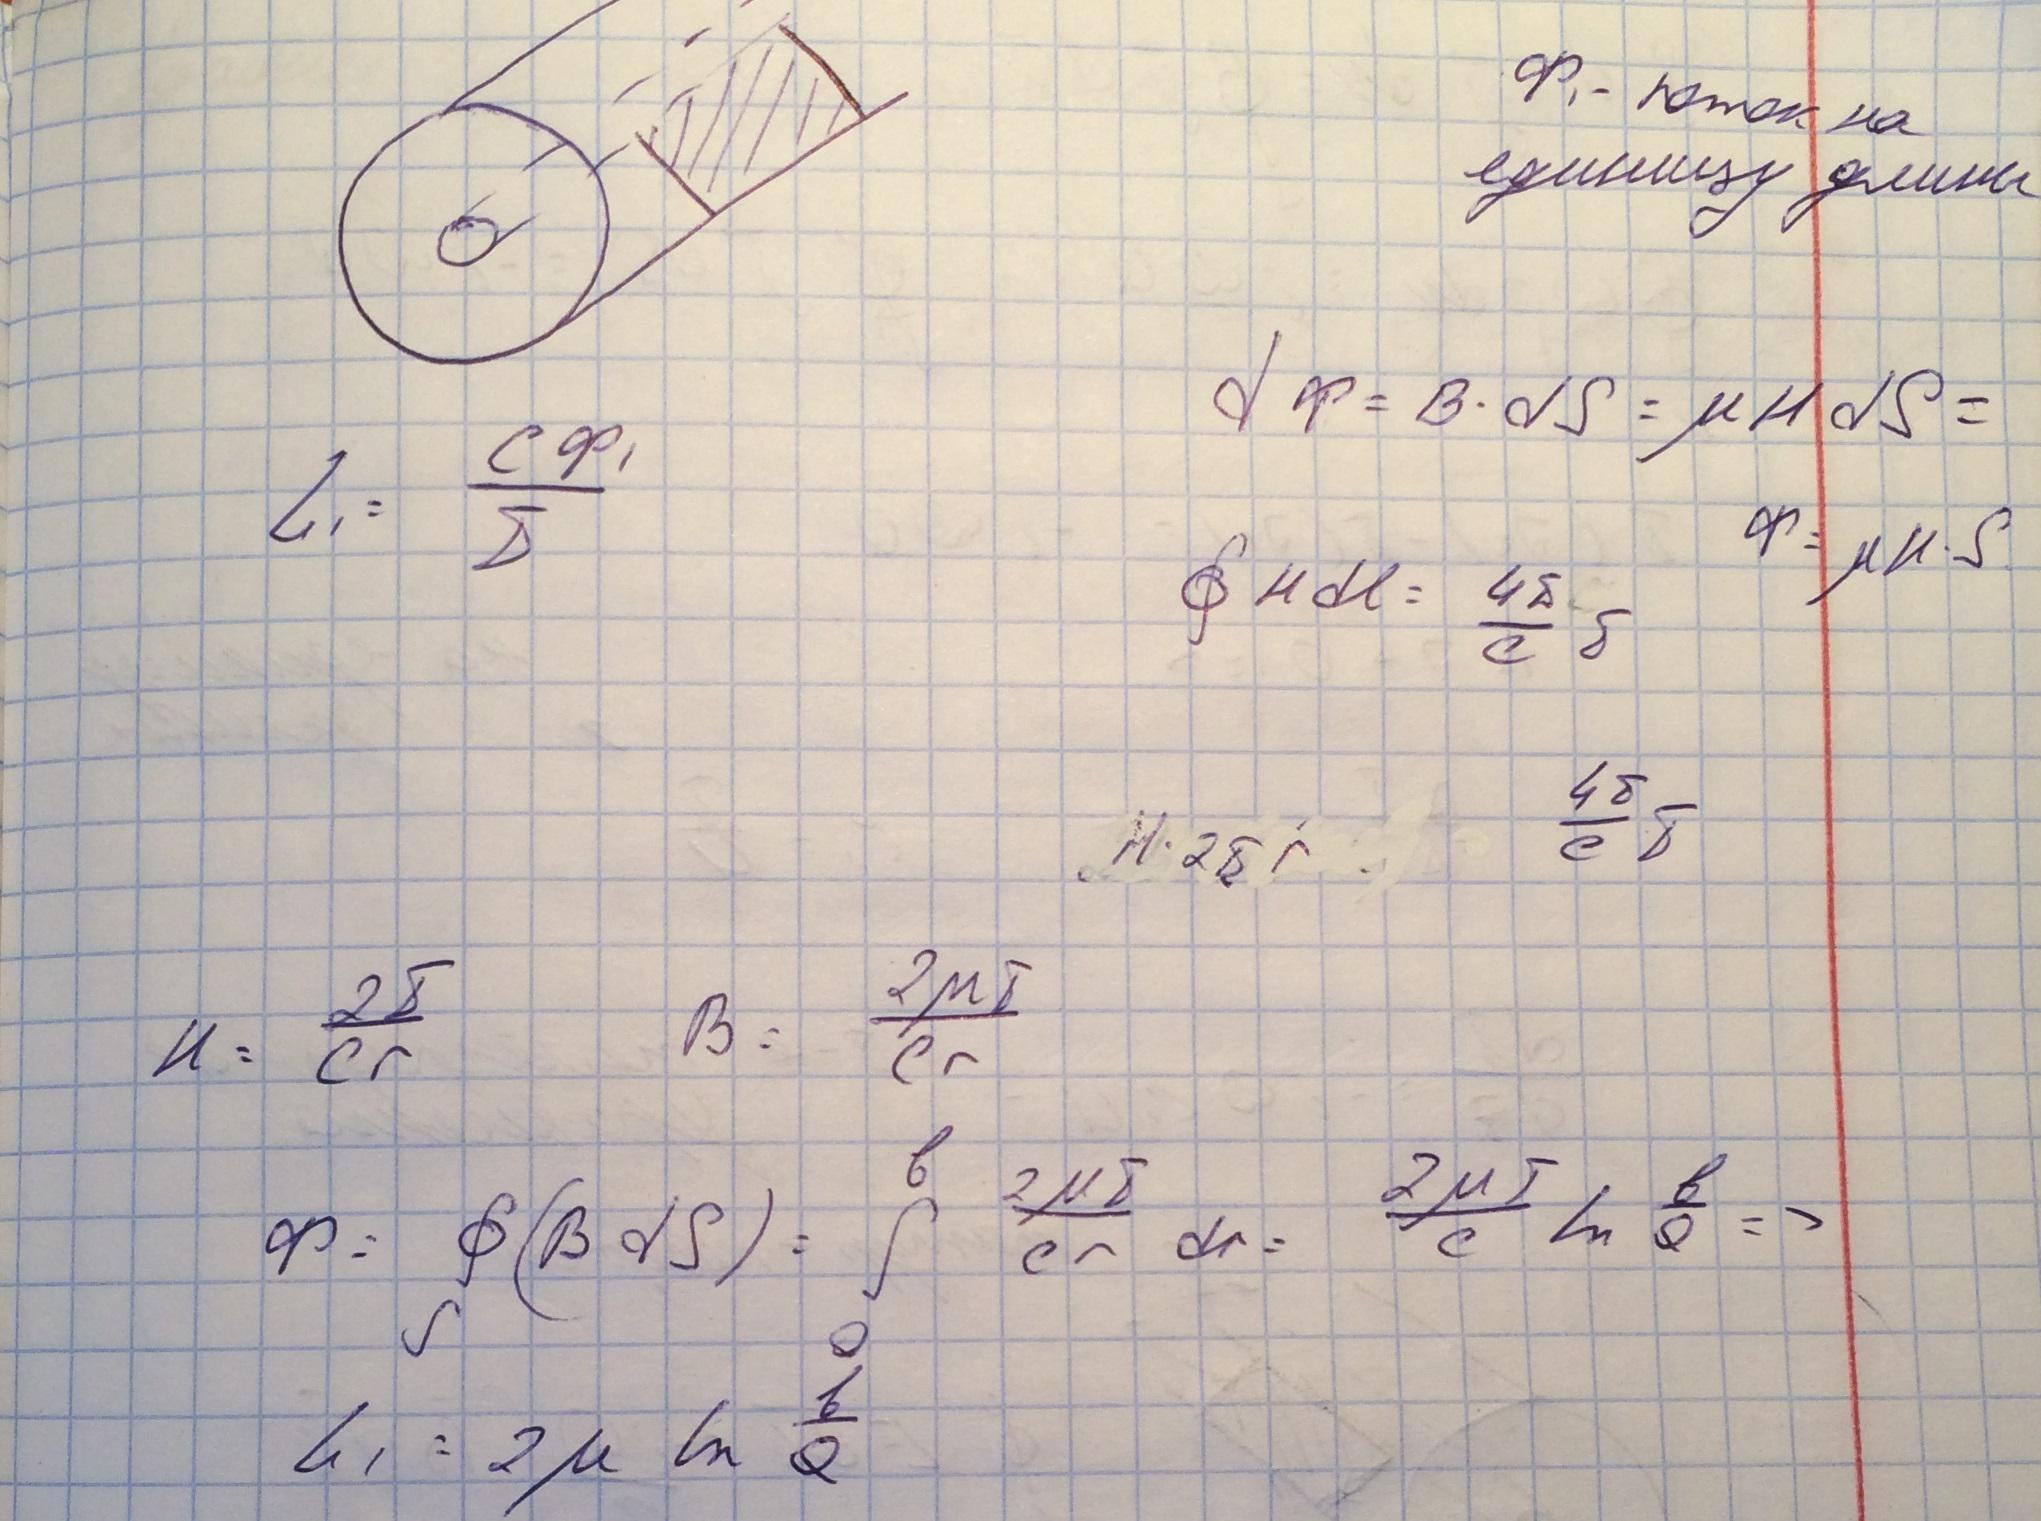 Ф₁ - поток на
единицу длины
dФ = B · dS = μH dS =
L₁ = cФ₁/I
Ф = μH · S
∮ H dl = 4π/c I
H · 2πr 4π/c I
H = 2I/cr B = 2μI/cr
Ф = ∮_S (B dS) = ∫_a^b 2μI/cr dr = 2μI/c ln b/a =>
L₁ = 2μ ln b/a